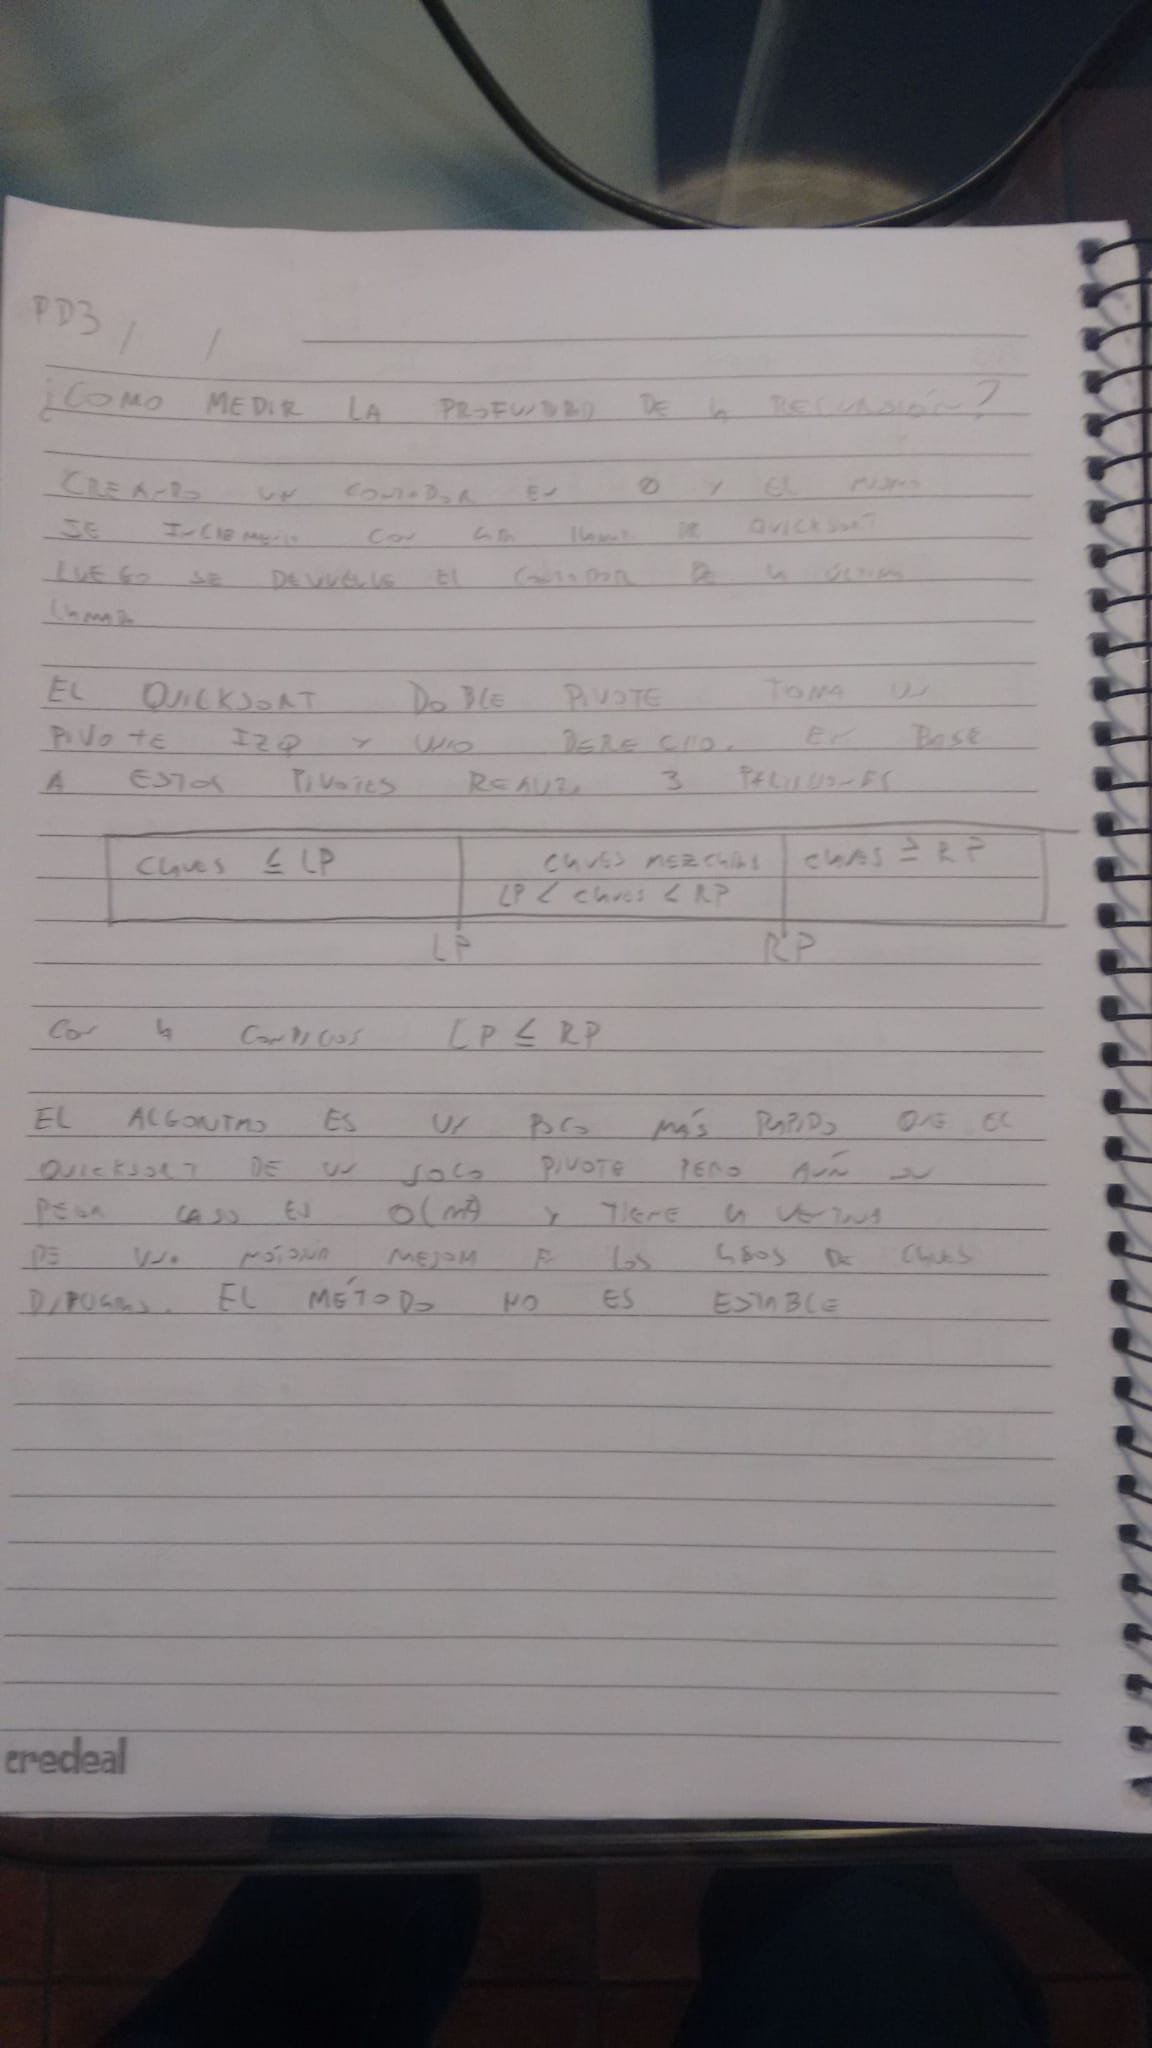 PD3 / /
¿COMO MEDIR LA PROFUNDIDAD DE LA RECURSIÓN?
CREANDO UN CONTADOR EN 0 Y EL MISMO
SE INCREMENTA CON CADA LLAMADA DE QUICKSORT
LUEGO SE DEVUELVE EL CONTADOR DE LA ÚLTIMA
LLAMADA
EL QUICKSORT DOBLE PIVOTE TOMA UN
PIVOTE IZQ Y UNO DERECHO. EN BASE
A ESTOS PIVOTES REALIZA 3 PARTICIONES
CLAVES ≤ LP
CLAVES MEZCLADAS
LP < CLAVES < RP
CLAVES ≥ RP
LP RP
CON LA LP ≤ RP
EL ALGORITMO ES UN POCO MÁS RAPIDO QUE EL
QUICKSORT DE UN SOLO PIVOTE PERO AÚN SU
PEOR CASO ES Y TIENE LA VENTAJA
DE UNA MEJORA EN LOS CASOS DE CLAVES
DUPLICADAS. EL MÉTODO NO ES ESTABLE
credeal